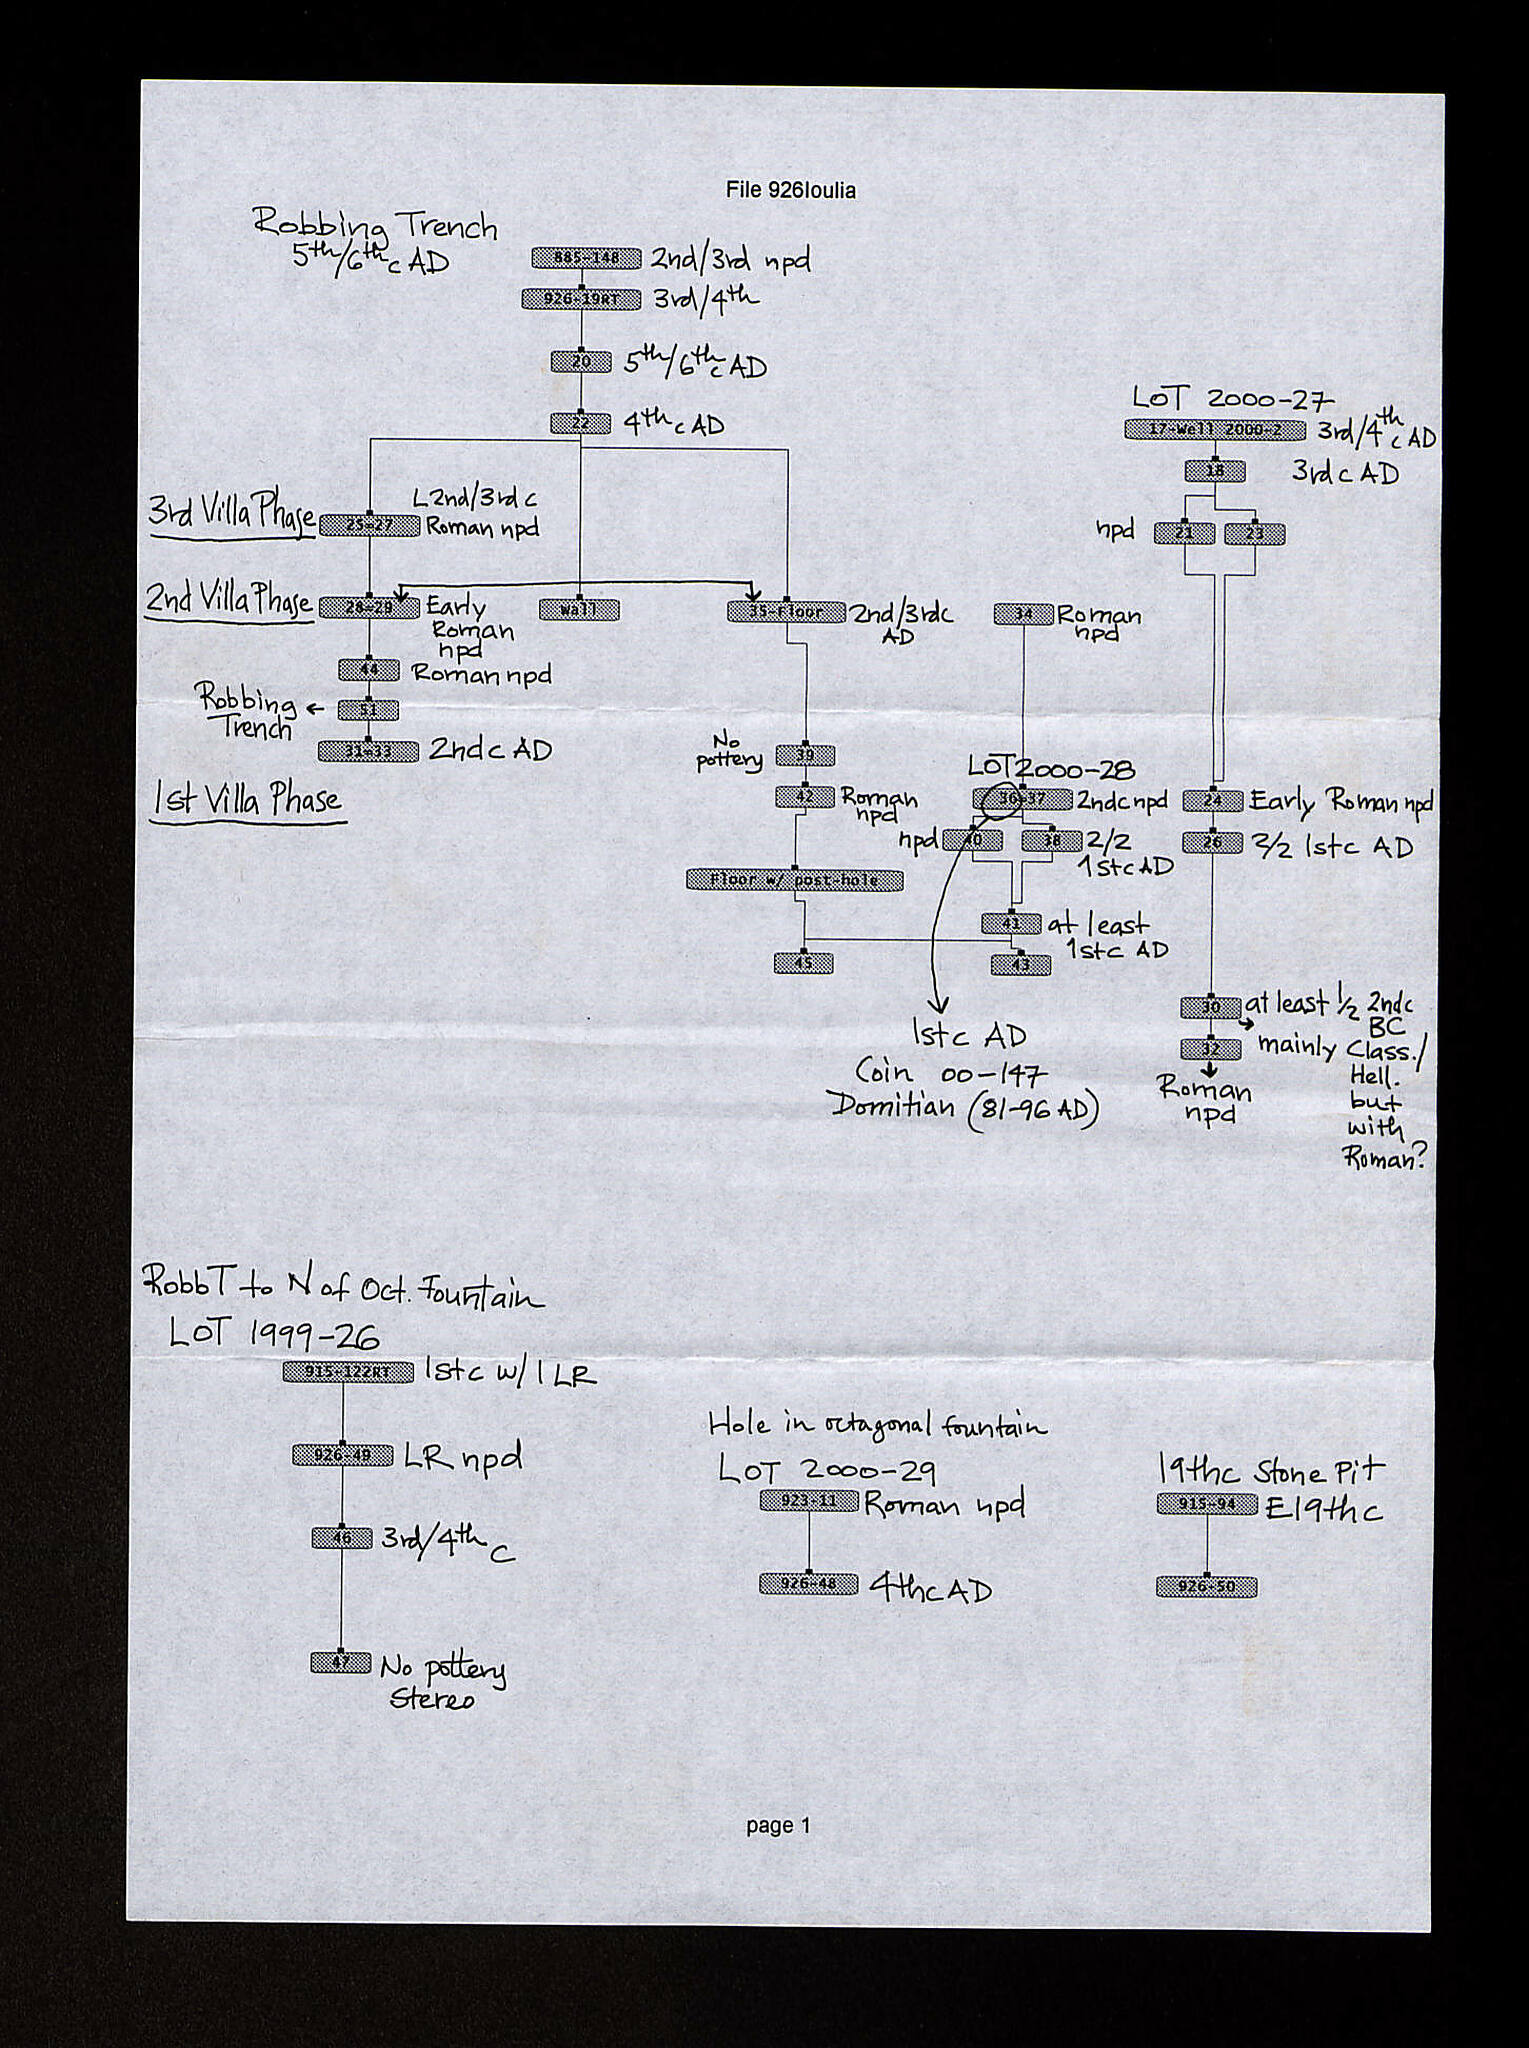 File 926Ioulia
Robbing Trench
5th/6th c AD
885-148 2nd/3rd npd
926-19RT 3rd/4th
20 5th/6th c AD
22 4th c AD
LOT 2000-27
17-Well 2000-2 3rd/4th c AD
18 3rd c AD
npd 21 23
3rd Villa Phase 25=27 L 2nd/3rd c
Roman npd
2nd Villa Phase 28=29 Early
Roman
npd
Wall
35-Floor 2nd/3rd c
AD
34 Roman
npd
44 Roman npd
Robbing ← 51
Trench
31=33 2nd c AD
1st Villa Phase
No
pottery 39
42 Roman
npd
Floor w/ post-hole
45
LOT 2000-28
36=37 2nd c npd
npd 40 38 2/2
1st c AD
41 at least
1st c AD
43
1st c AD
Coin 00-147
Domitian (81-96 AD)
24 Early Roman npd
26 2/2 1st c AD
30 at least 1/2 2nd c
BC
mainly Class./
Hell.
but
with
Roman?
32
Roman
npd
RobbT to N of Oct. Fountain
LOT 1999-26
915-122RT 1st c w/ 1 LR
926-49 LR npd
46 3rd/4th c
47 No pottery
Stereo
Hole in octagonal fountain
LOT 2000-29
923-11 Roman npd
926-48 4th c AD
19th c Stone Pit
915-94 E19th c
926-50
page 1